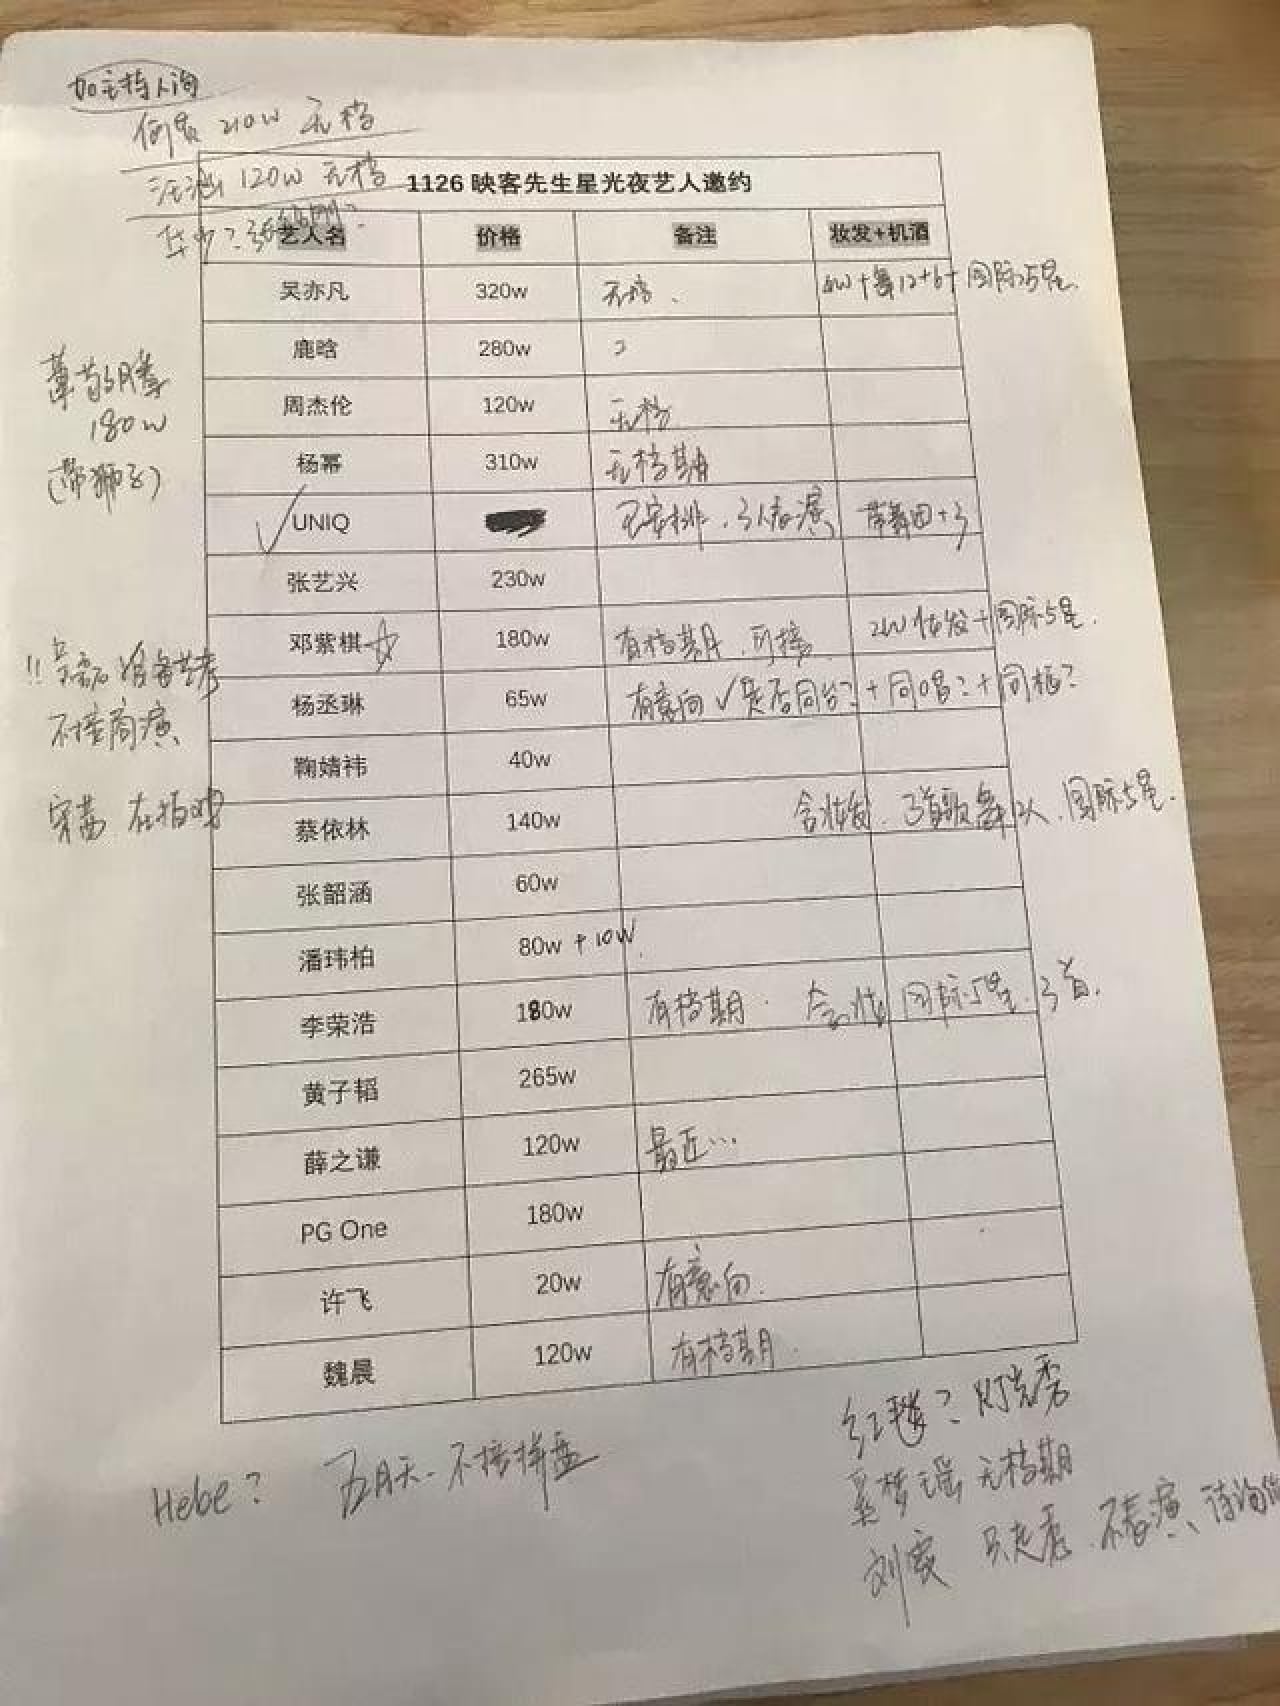 加主持人询
何炅 210w 无档
汪涵 120w 无档
华少？张绍刚？
1126 映客先生星光夜艺人邀约
艺人名 价格 备注 妆发+机酒
吴亦凡 320w 无档. 4w+舞12+6+国际5星.
鹿晗 280w ?
周杰伦 120w 无档
杨幂 310w 无档期
UNIQ 可安排. 3人表演 带舞团+3
张艺兴 230w
邓紫棋 180w 有档期. 可接. 2W 妆发+国际5星.
杨丞琳 65w 有意向√是否同台?+同唱?+同框?
鞠婧祎 40w
蔡依林 140w 含妆发. 3首歌 舞12人. 国际5星.
张韶涵 60w
潘玮柏 80w +10W
李荣浩 180w 有档期. 含妆 国际5星. 3首.
黄子韬 265w
薛之谦 120w 最近…
PG One 180w
许飞 20w 有意向.
魏晨 120w 有档期.
萧敬腾
180w
(带狮子)
!! 准备艺考
不接商演
宋茜 在拍戏
Hebe? 五月天-不接拼盘
走秀
奚梦瑶 无档期
刘雯 只走秀. 不表演、待询价